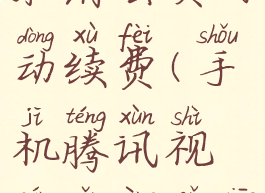 dòng xù fèi shǒu
动续费(手
jī téng xùn shì
机腾讯视